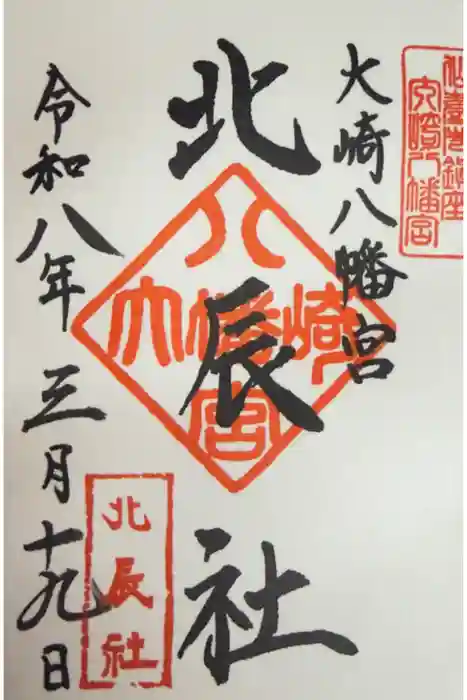 仙臺市鎮座
大崎八幡宮
大崎八幡宮
北辰社
八
大 幡 崎
宮
令和八年三月十九日
北辰社